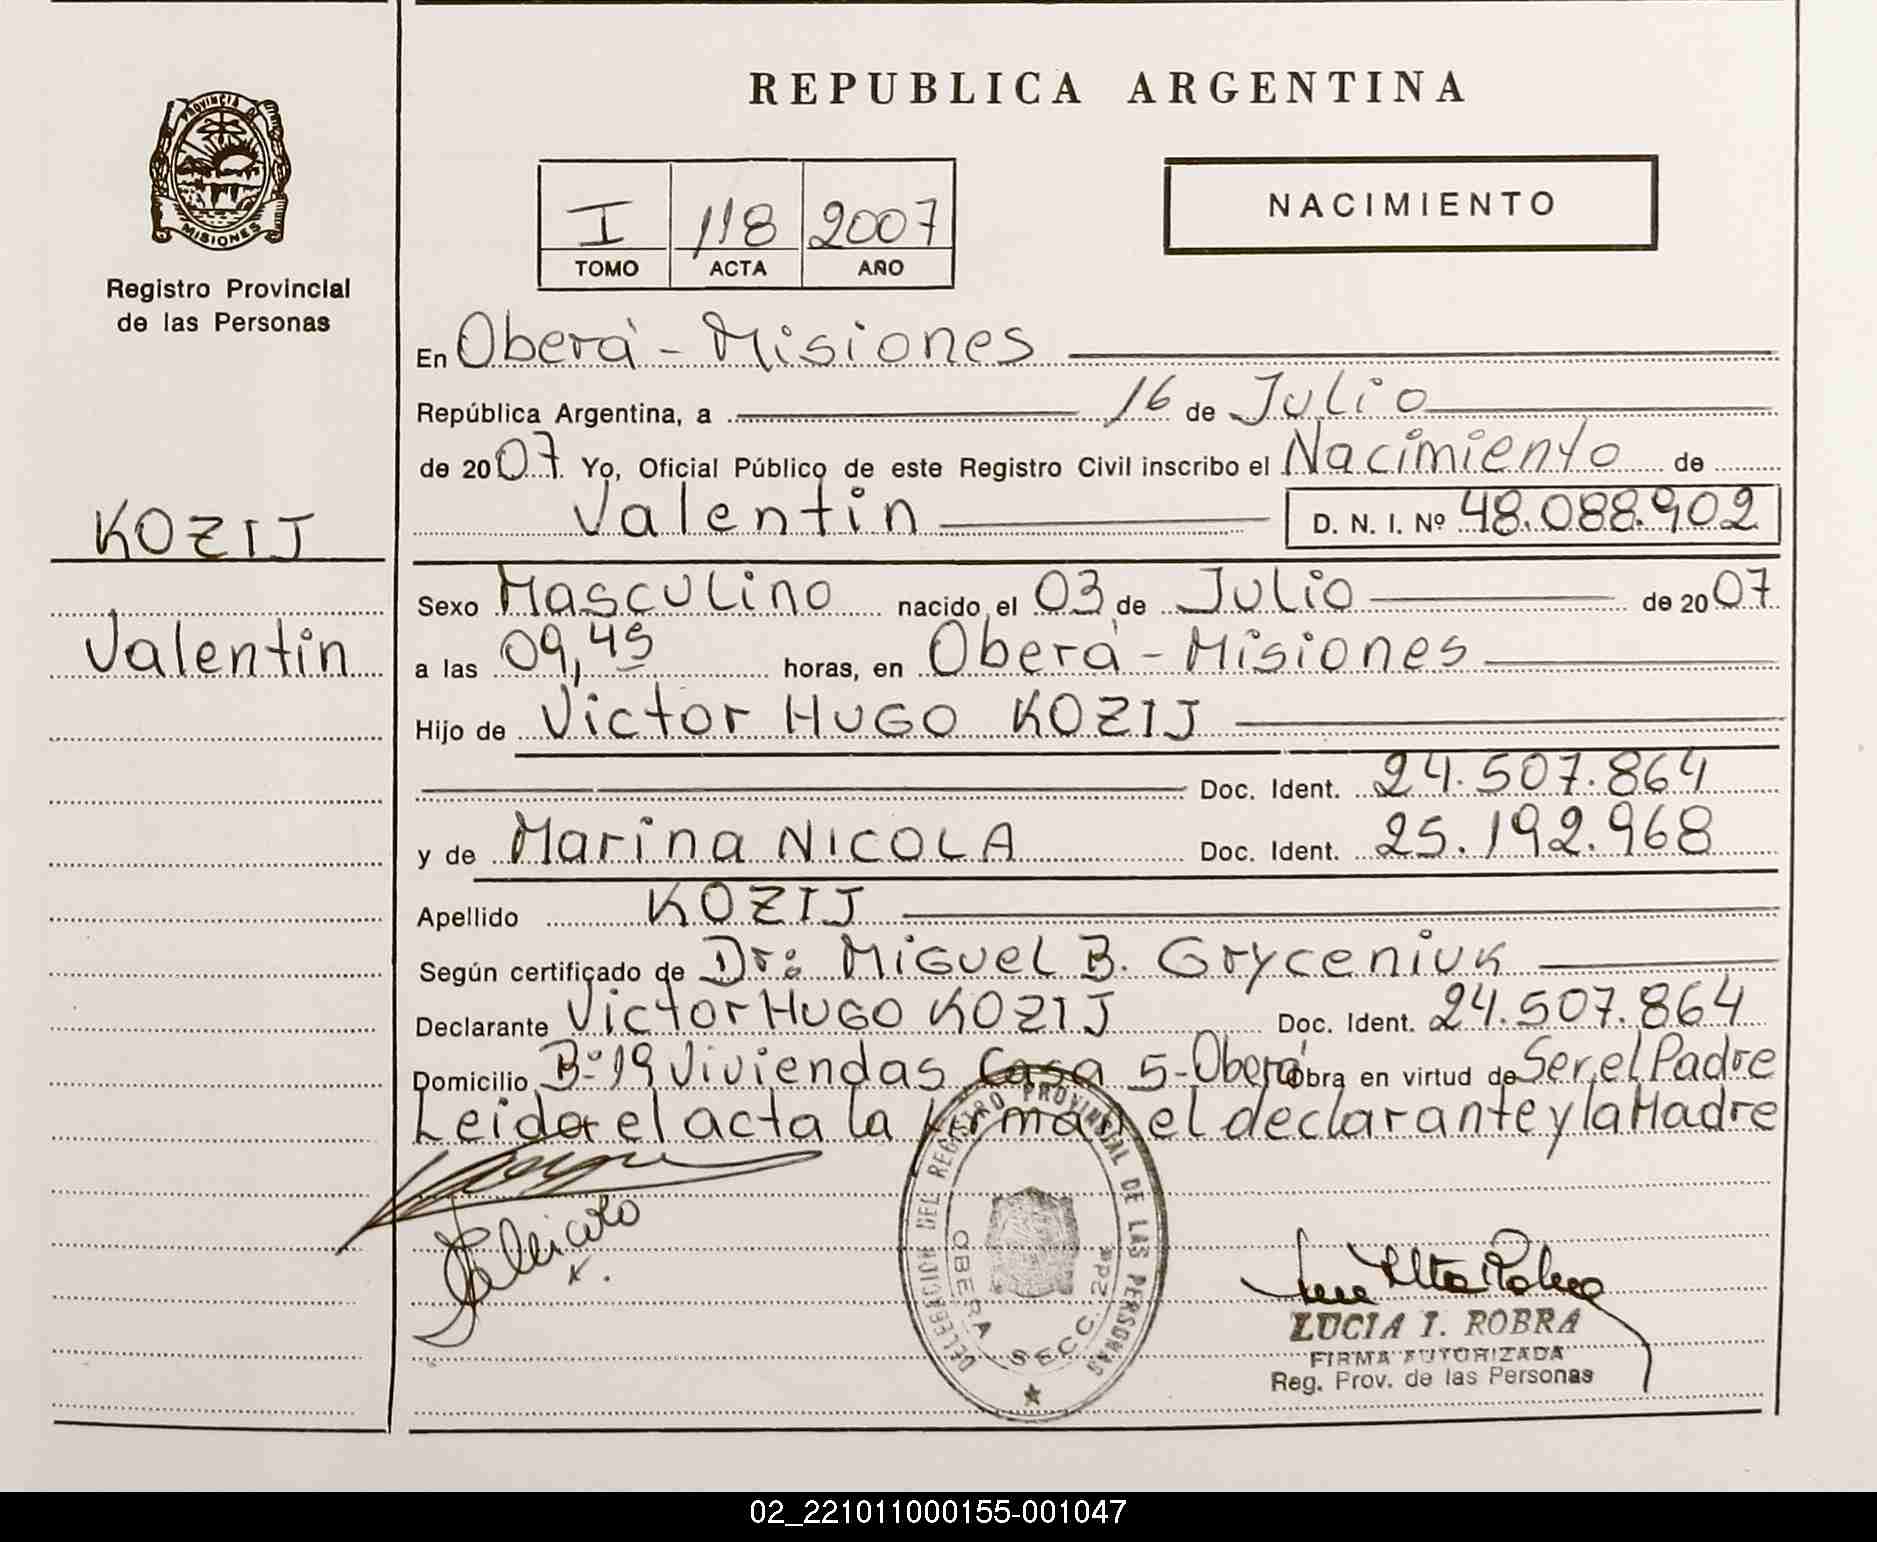 PROVINCIA DE
MISIONES
Registro Provincial
de las Personas
KOZIJ
Valentin
REPUBLICA ARGENTINA
I 118 2007
TOMO ACTA AÑO
NACIMIENTO
En Oberá - Misiones
República Argentina, a 16 de Julio
de 2007 Yo, Oficial Público de este Registro Civil inscribo el Nacimiento de
Valentin D. N. I. Nº 48.088.902
Sexo Masculino nacido el 03 de Julio de 2007
a las 09,45 horas, en Oberá - Misiones
Hijo de Victor HUGO KOZIJ
Doc. Ident. 24.507.864
y de Marina NICOLA Doc. Ident. 25.192.968
Apellido KOZIJ
Según certificado de Dr: Miguel B. Gryceniuk
Declarante Victor HUGO KOZIJ Doc. Ident. 24.507.864
Domicilio Bº 19 Viviendas Casa 5-Oberá Obra en virtud de Ser el Padre
Leida el acta la firman el declarante y la Madre
DELEGACION DEL REGISTRO PROVINCIAL DE LAS PERSONAS
OBERA SECC. 2da
LUCIA I. ROBRA
FIRMA AUTORIZADA
Reg. Prov. de las Personas
02_221011000155-001047